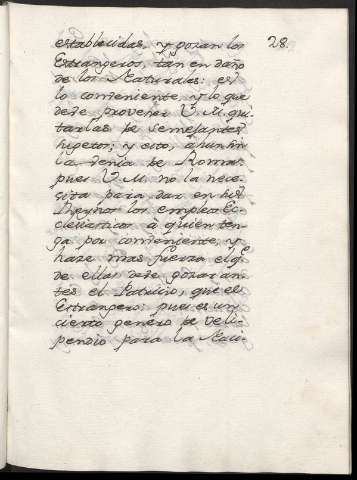 28.
establecidas, y gozan los
Estrangeros, tan en daño
de los Naturales: es
lo comveniente, y lo que
deve proveher V. M. qui-
tarlas de semejantes
sugetos; y esto, àhun sin
la venia de Roma,
pues V. M. no la nece-
sita para dar en sus
Reynos los empleos Ec-
clesiasticos à quien ten-
ga por comveniente, y
haze mas fuerza el q.e
de ellas deva gozar an-
tes el Patricio, que el
Estrangero; pues es un
cierto genero de Vili-
pendio para la Naci-